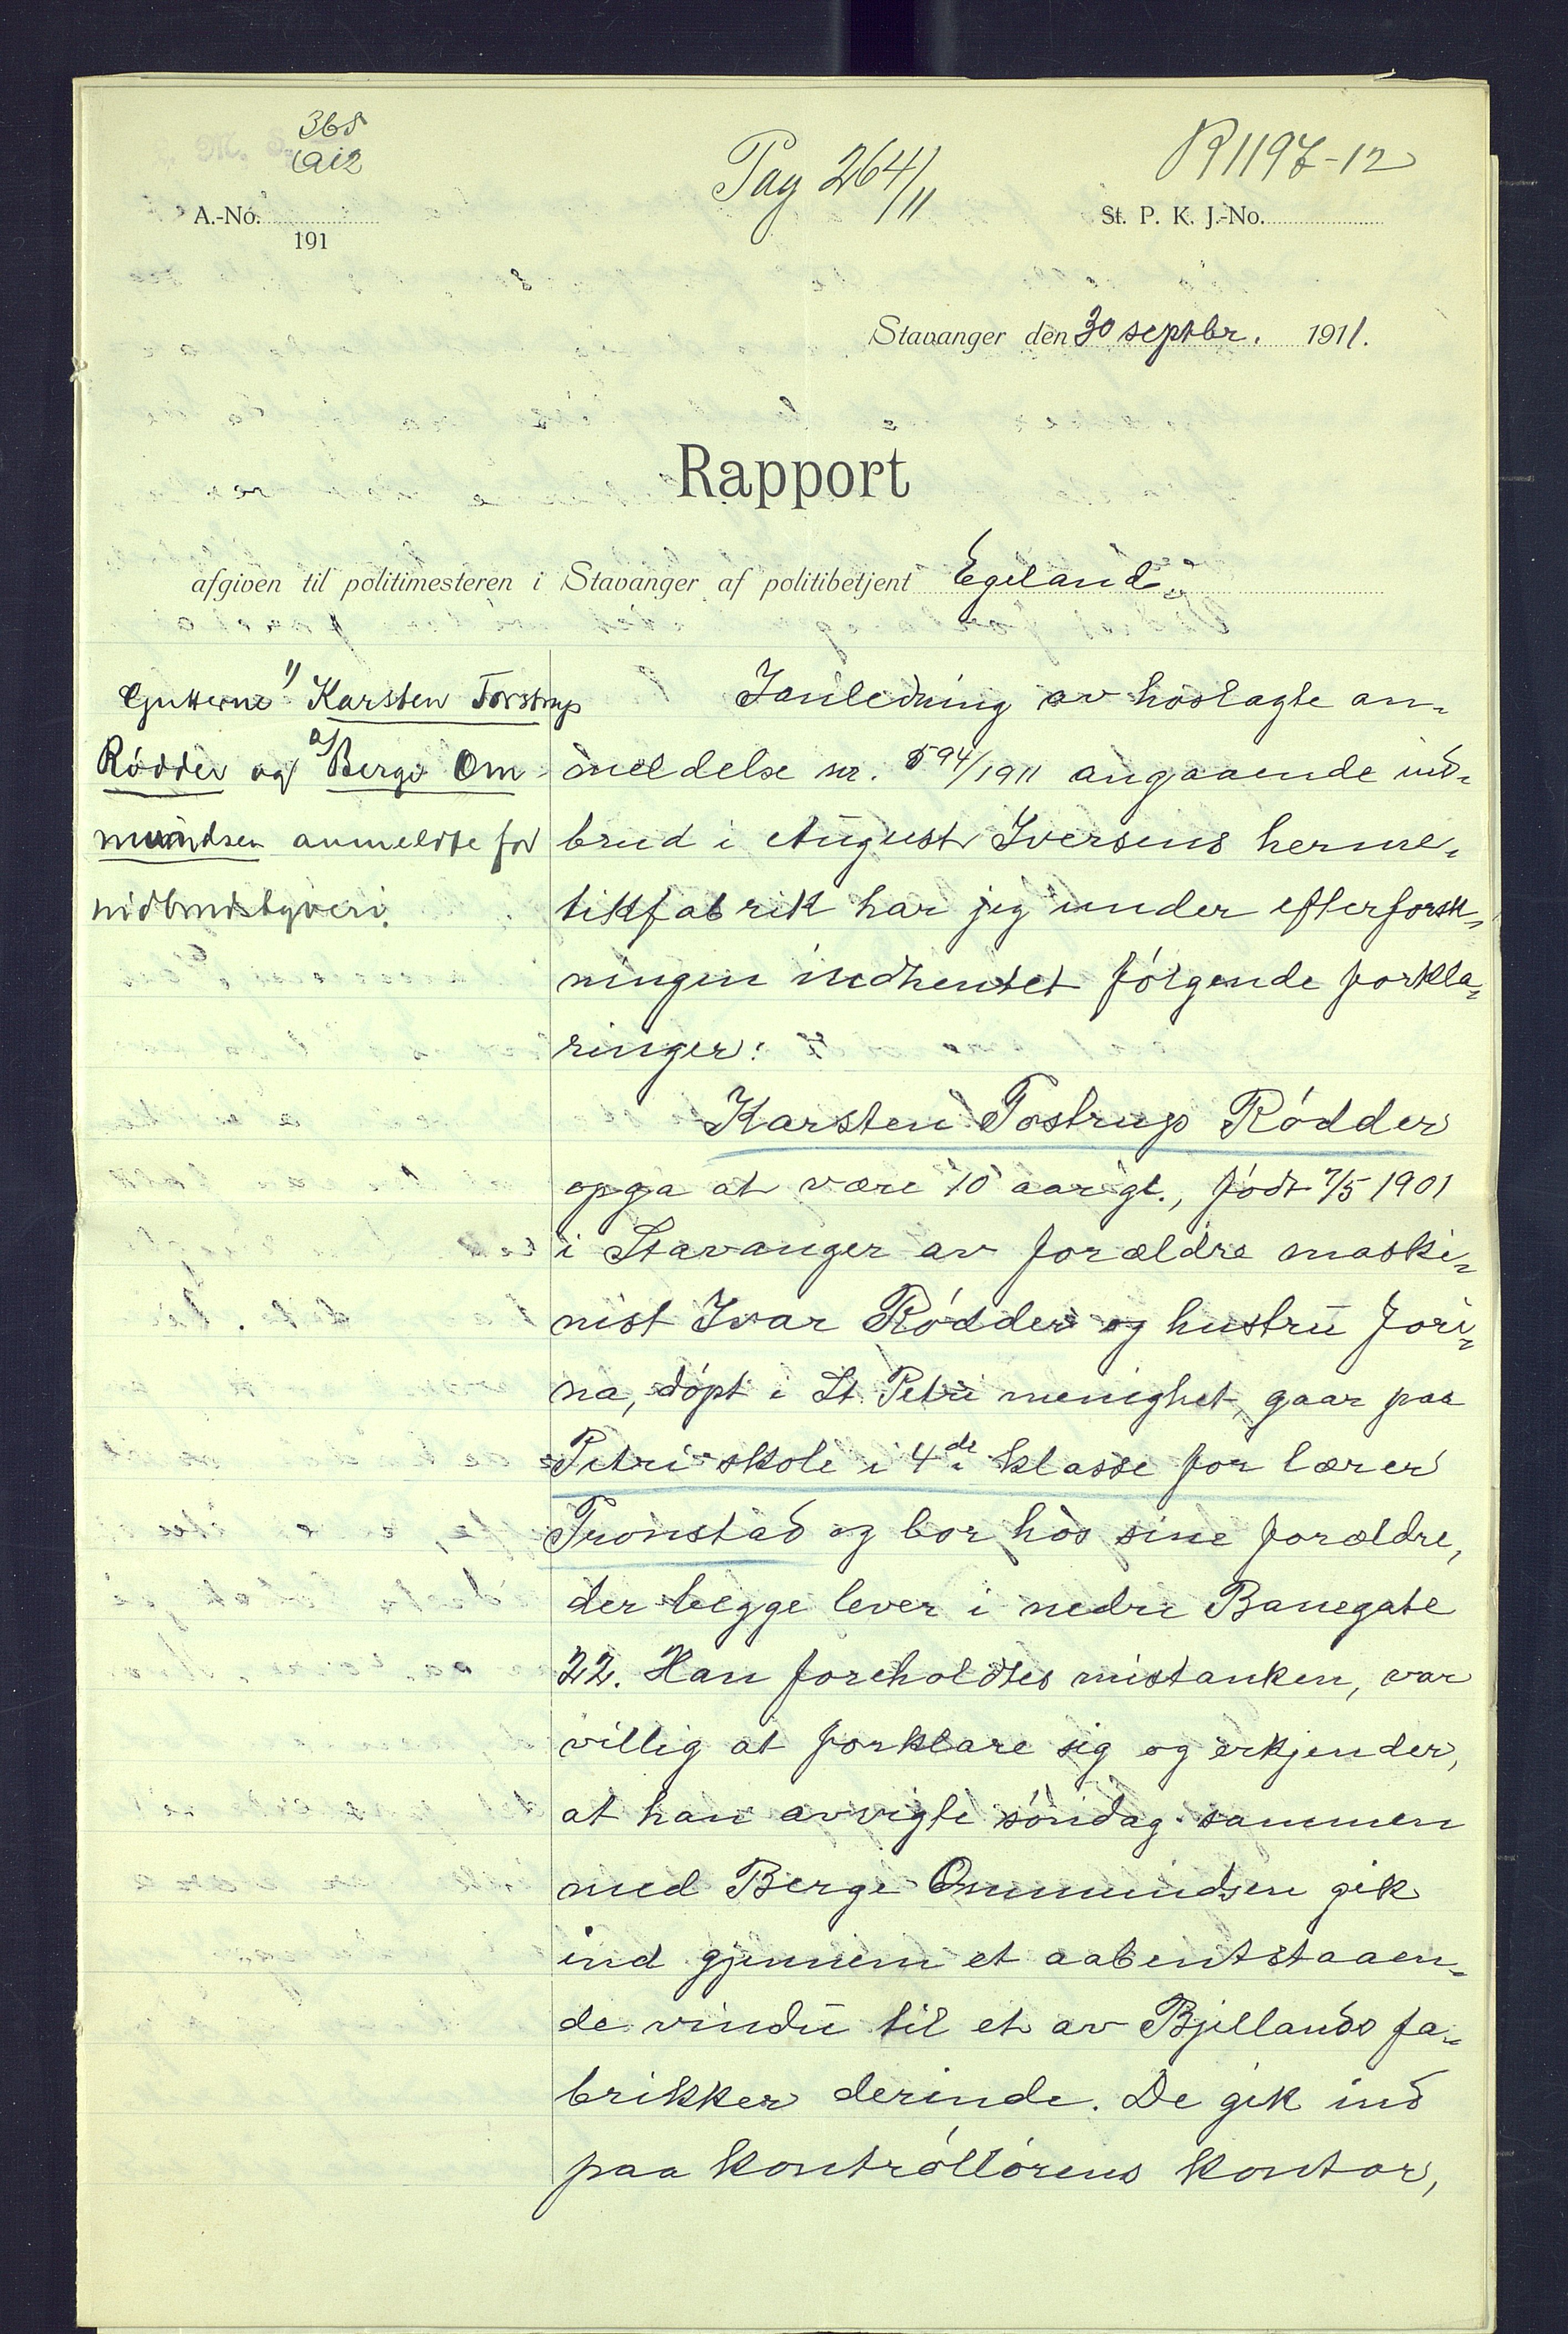 368
1912
Pag 264/11
R 1197-12
A.-No.
191
St. P. K. J.-No.
Stavanger den 30 septbr. 1911.
Rapport
afgiven til politimesteren i Stavanger af politibetjent Egeland.
Gutterne 1) Karsten Torstrup
Rödder og 2) Berge Om-
mundsen anmeldte for
indbrudstyveri.
I anledning av hoslagte an-
meldelse nr. 594/1911 angaaende ind-
brud i August Iversens herme-
tikfabrik har jeg under efterforsk-
ningen indhentet følgende forkla-
ringer:
Karsten Tostrup Rödder
opga at være 10 aar gl., født 7/5 1901
i Stavanger av forældre maski-
nist Ivar Rödder og hustru Jori-
na, døpt i St. Petri menighet, gaar paa
Petri skole i 4de klasse for lærer
Tronstad og bor hos sine forældre,
der begge lever i nedre Banegate
22. Han foreholdtes mistanken, var
villig at forklare sig og erkjender,
at han avvigte søndag sammen
med Berge Ommundsen gik
ind gjennem et aabentstaaen-
de vindu til et av Bjellands fa-
brikker derinde. De gik ind
paa kontrollørens kontor,